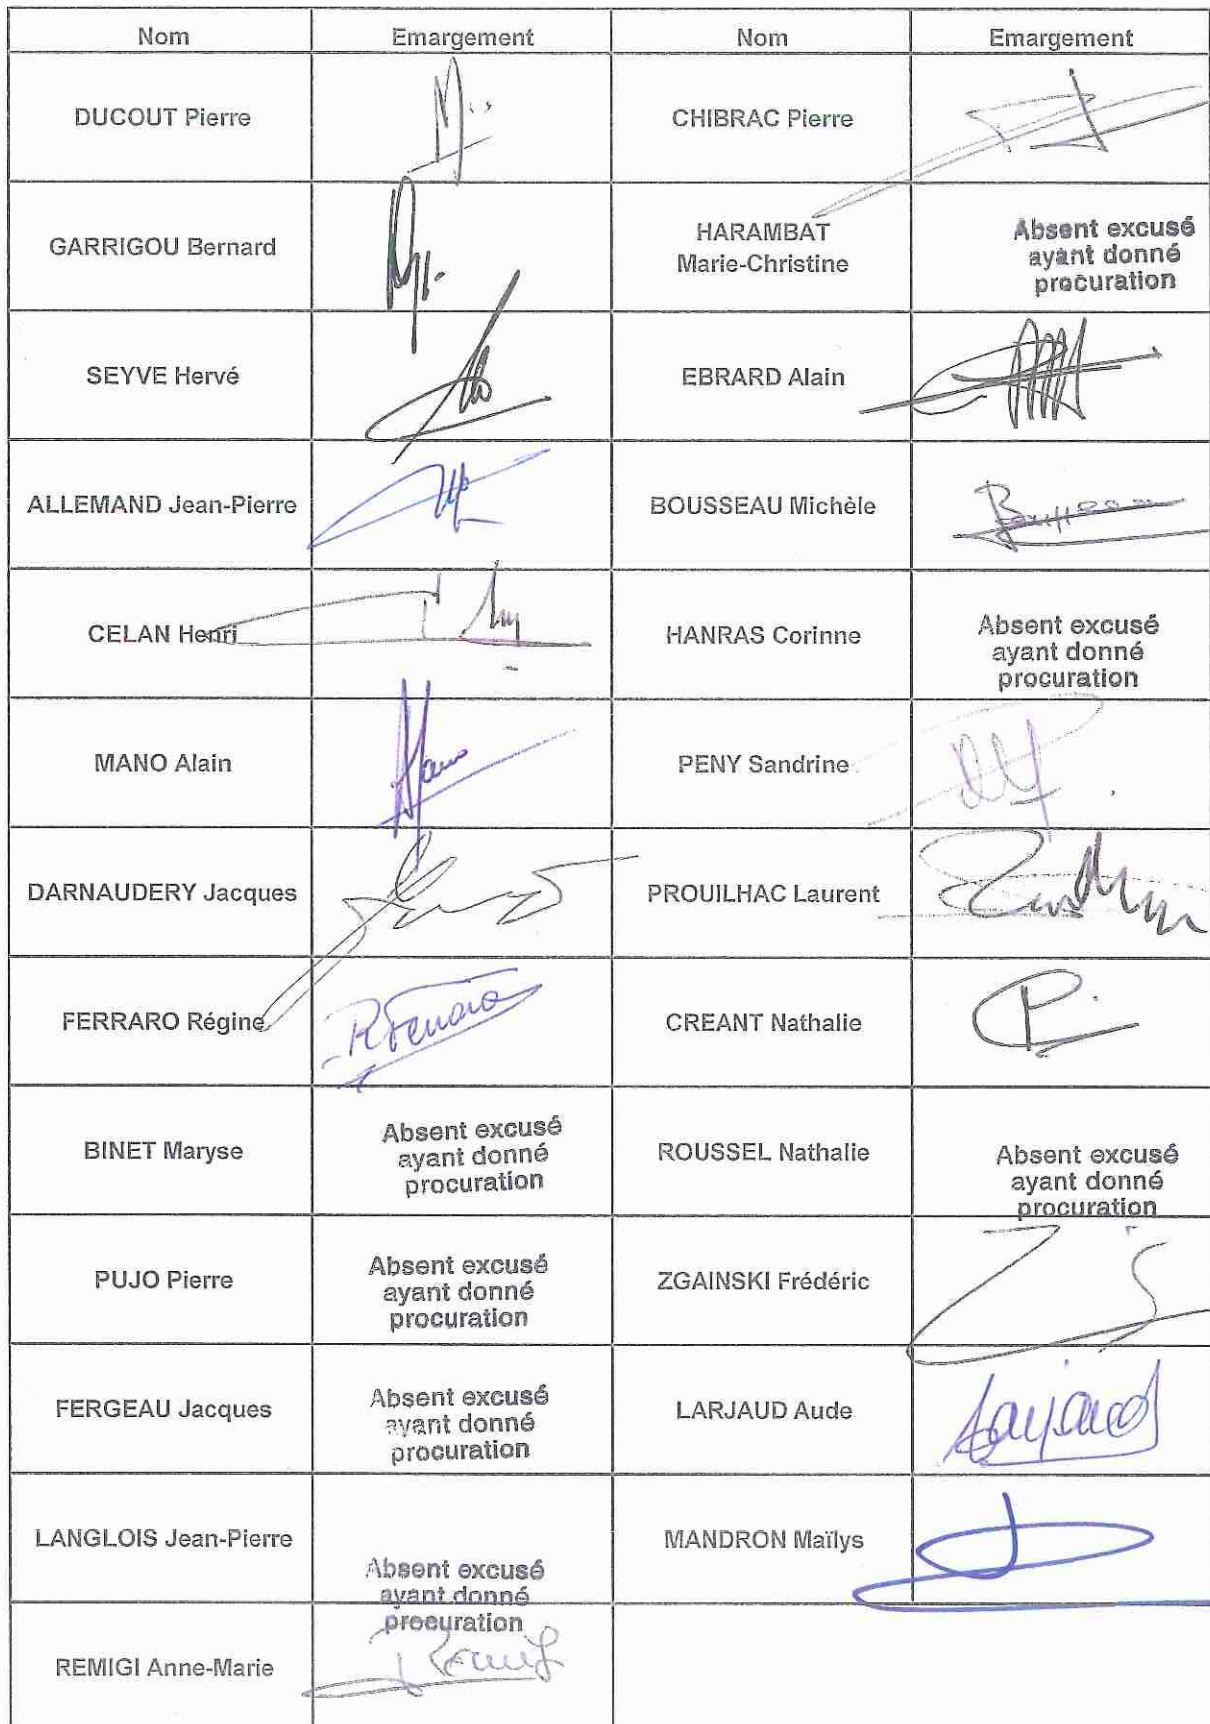 Nom Emargement Nom Emargement
DUCOUT Pierre CHIBRAC Pierre
GARRIGOU Bernard HARAMBAT
Marie-Christine Absent excusé
ayant donné
procuration
SEYVE Hervé EBRARD Alain
ALLEMAND Jean-Pierre BOUSSEAU Michèle Bousseau
CELAN Henri HANRAS Corinne Absent excusé
ayant donné
procuration
MANO Alain Mano PENY Sandrine
DARNAUDERY Jacques PROUILHAC Laurent
FERRARO Régine R Ferraro CREANT Nathalie
BINET Maryse Absent excusé
ayant donné
procuration
ROUSSEL Nathalie Absent excusé
ayant donné
procuration
PUJO Pierre Absent excusé
ayant donné
procuration
ZGAINSKI Frédéric
FERGEAU Jacques Absent excusé
ayant donné
procuration
LARJAUD Aude Larjaud
LANGLOIS Jean-Pierre Absent excusé
ayant donné
procuration
MANDRON Maïlys
REMIGI Anne-Marie Remigi